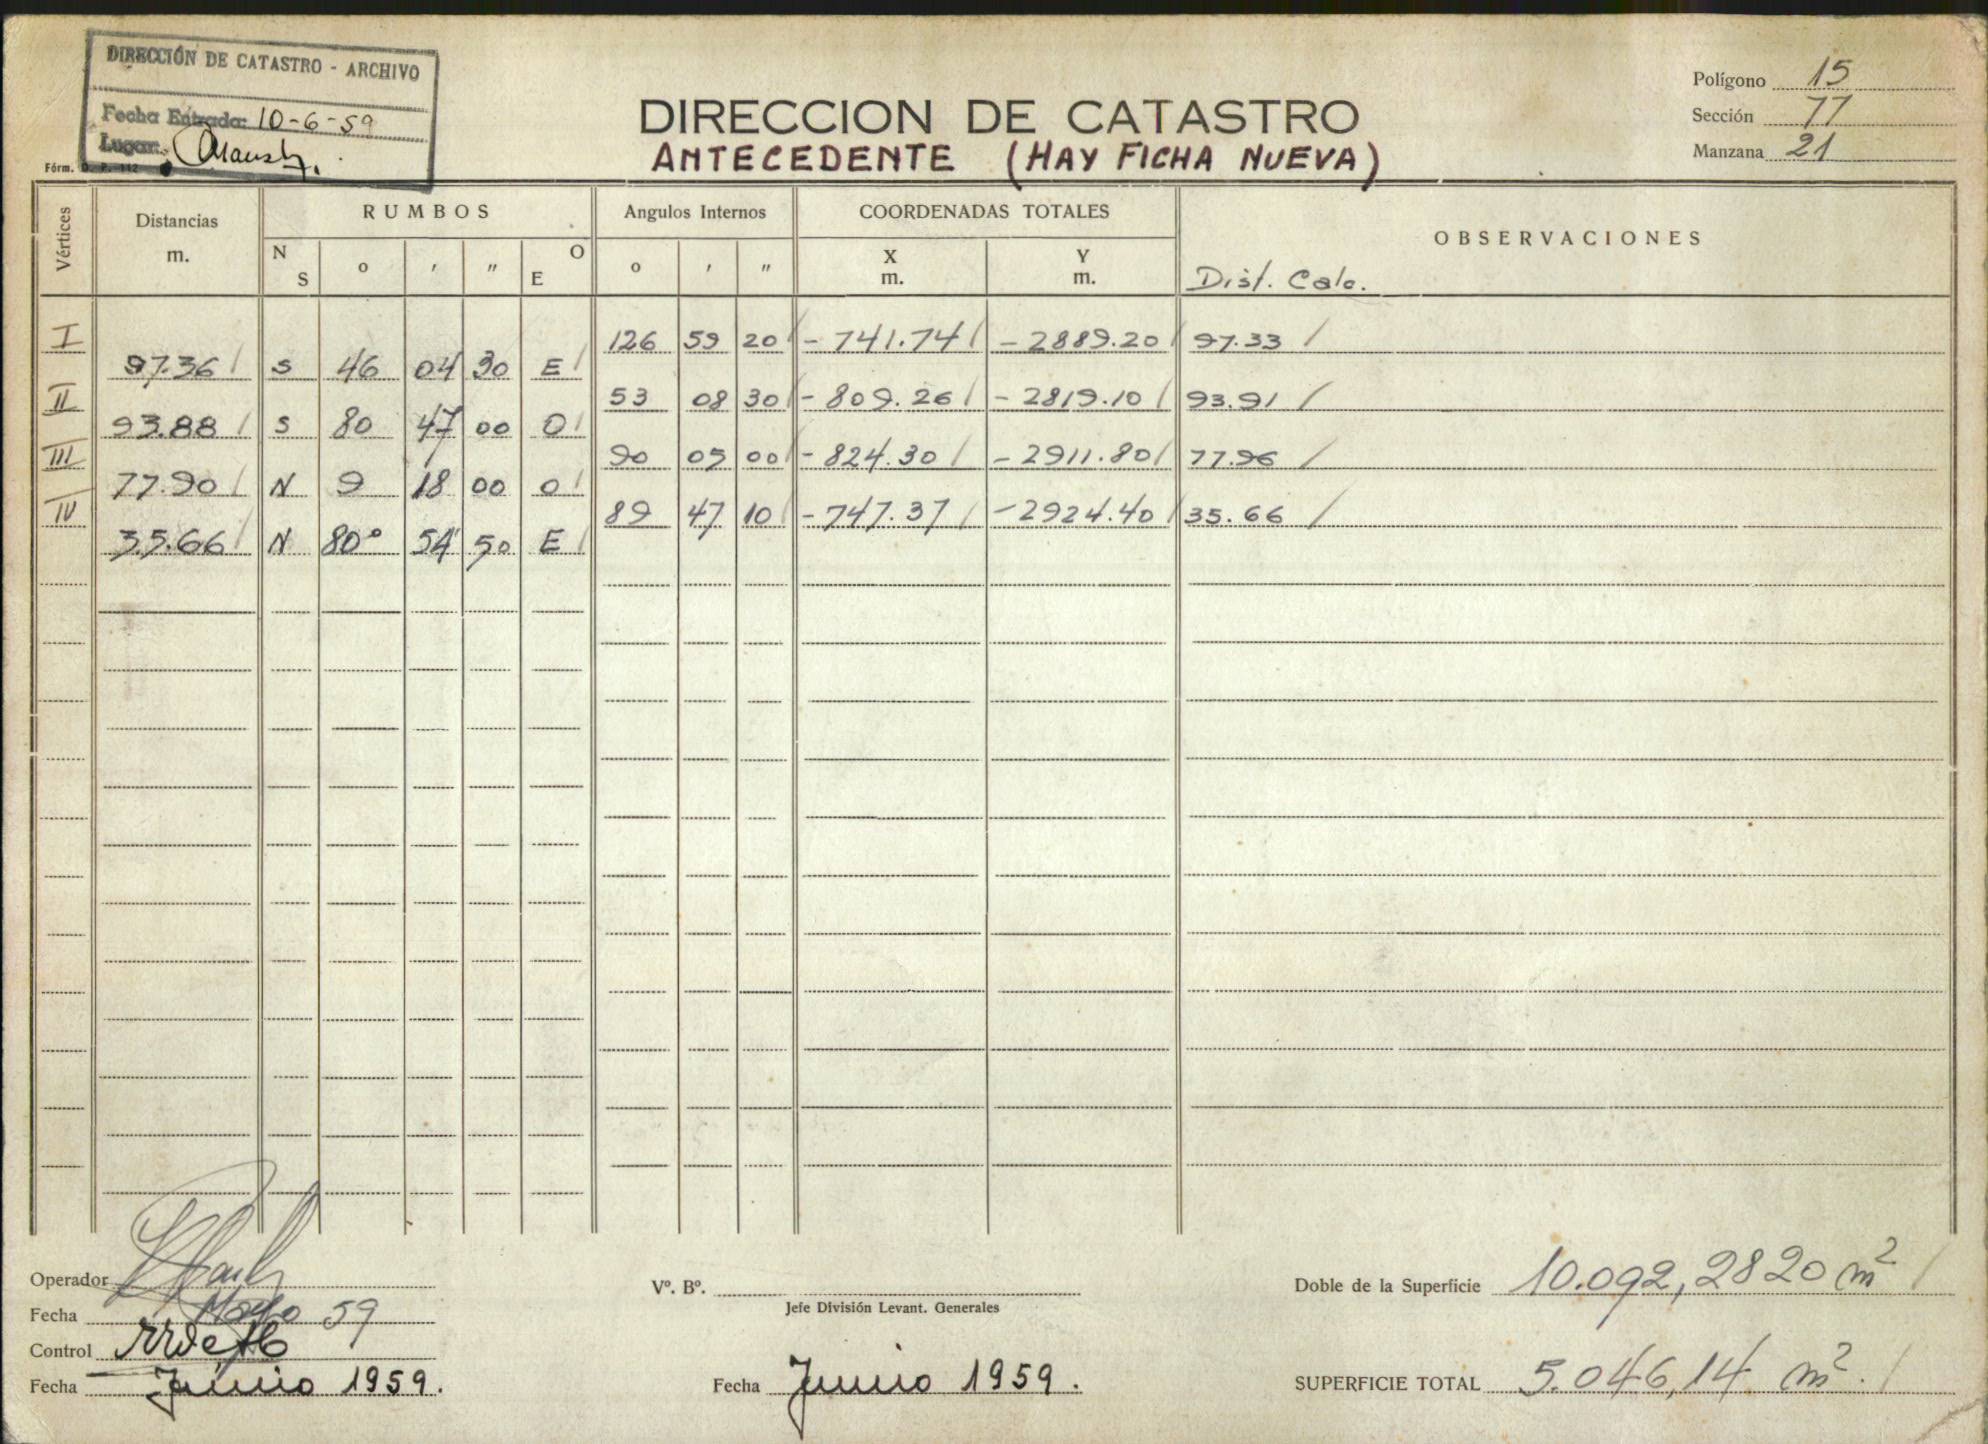 DIRECCIÓN DE CATASTRO - ARCHIVO
Fecha Entrada: 10-6-59
Lugar:
Fórm. D. P. 112
DIRECCION DE CATASTRO
ANTECEDENTE (HAY FICHA NUEVA)
Polígono 15
Sección 77
Manzana 21
Vértices
Distancias m.
RUMBOS
N S ° ' " O E
Angulos Internos
° ' "
COORDENADAS TOTALES
X m. Y m.
OBSERVACIONES
Dist. Calc.
I 126 59 20 - 741.74 - 2889.20 97.33
97.36 S 46 04 30 E
II 53 08 30 - 809.26 - 2819.10 93.91
93.88 S 80 47 00 O
III 90 05 00 - 824.30 - 2911.80 77.96
77.90 N 9 18 00 O
IV 89 47 10 - 747.37 - 2924.40 35.66
35.66 N 80° 54' 50 E
Operador
Fecha Mayo 59
Control
Fecha Junio 1959.
Vº. Bº.
Jefe División Levant. Generales
Fecha Junio 1959.
Doble de la Superficie 10.092,2820 m²
SUPERFICIE TOTAL 5.046,14 m².